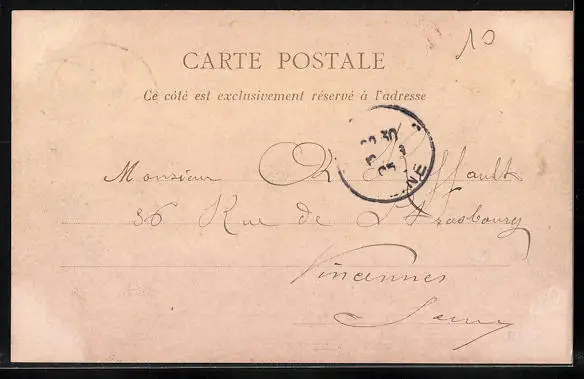 10
CARTE POSTALE
Ce côté est exclusivement réservé à l'adresse
Monsieur Ch
36 Rue de Strasbourg
Vincennes
Seine